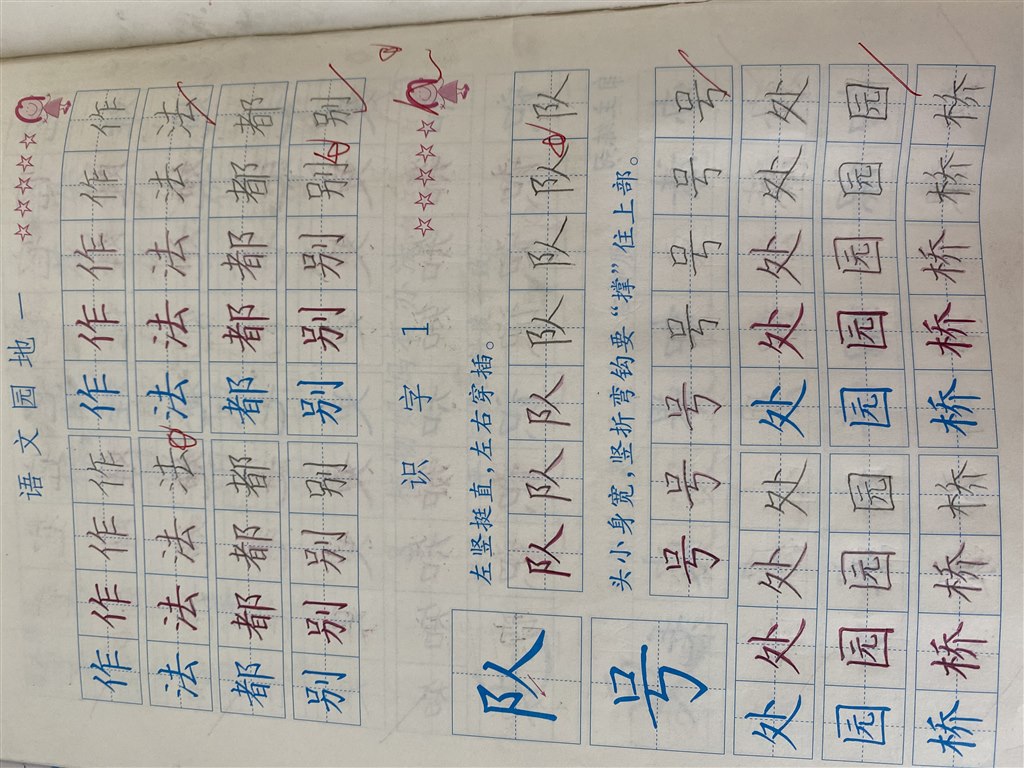 语文园地一
作作作作作作作作作
法法法法法法法法法
都都都都都都都都都
别别别别别别别别别
识字1
左竖挺直，左右穿插。
队队队队队队队队
头小身宽，竖折弯钩要“撑”住上部。
号号号号号号号号
处处处处处处处处处
园园园园园园园园园
桥桥桥桥桥桥桥桥桥